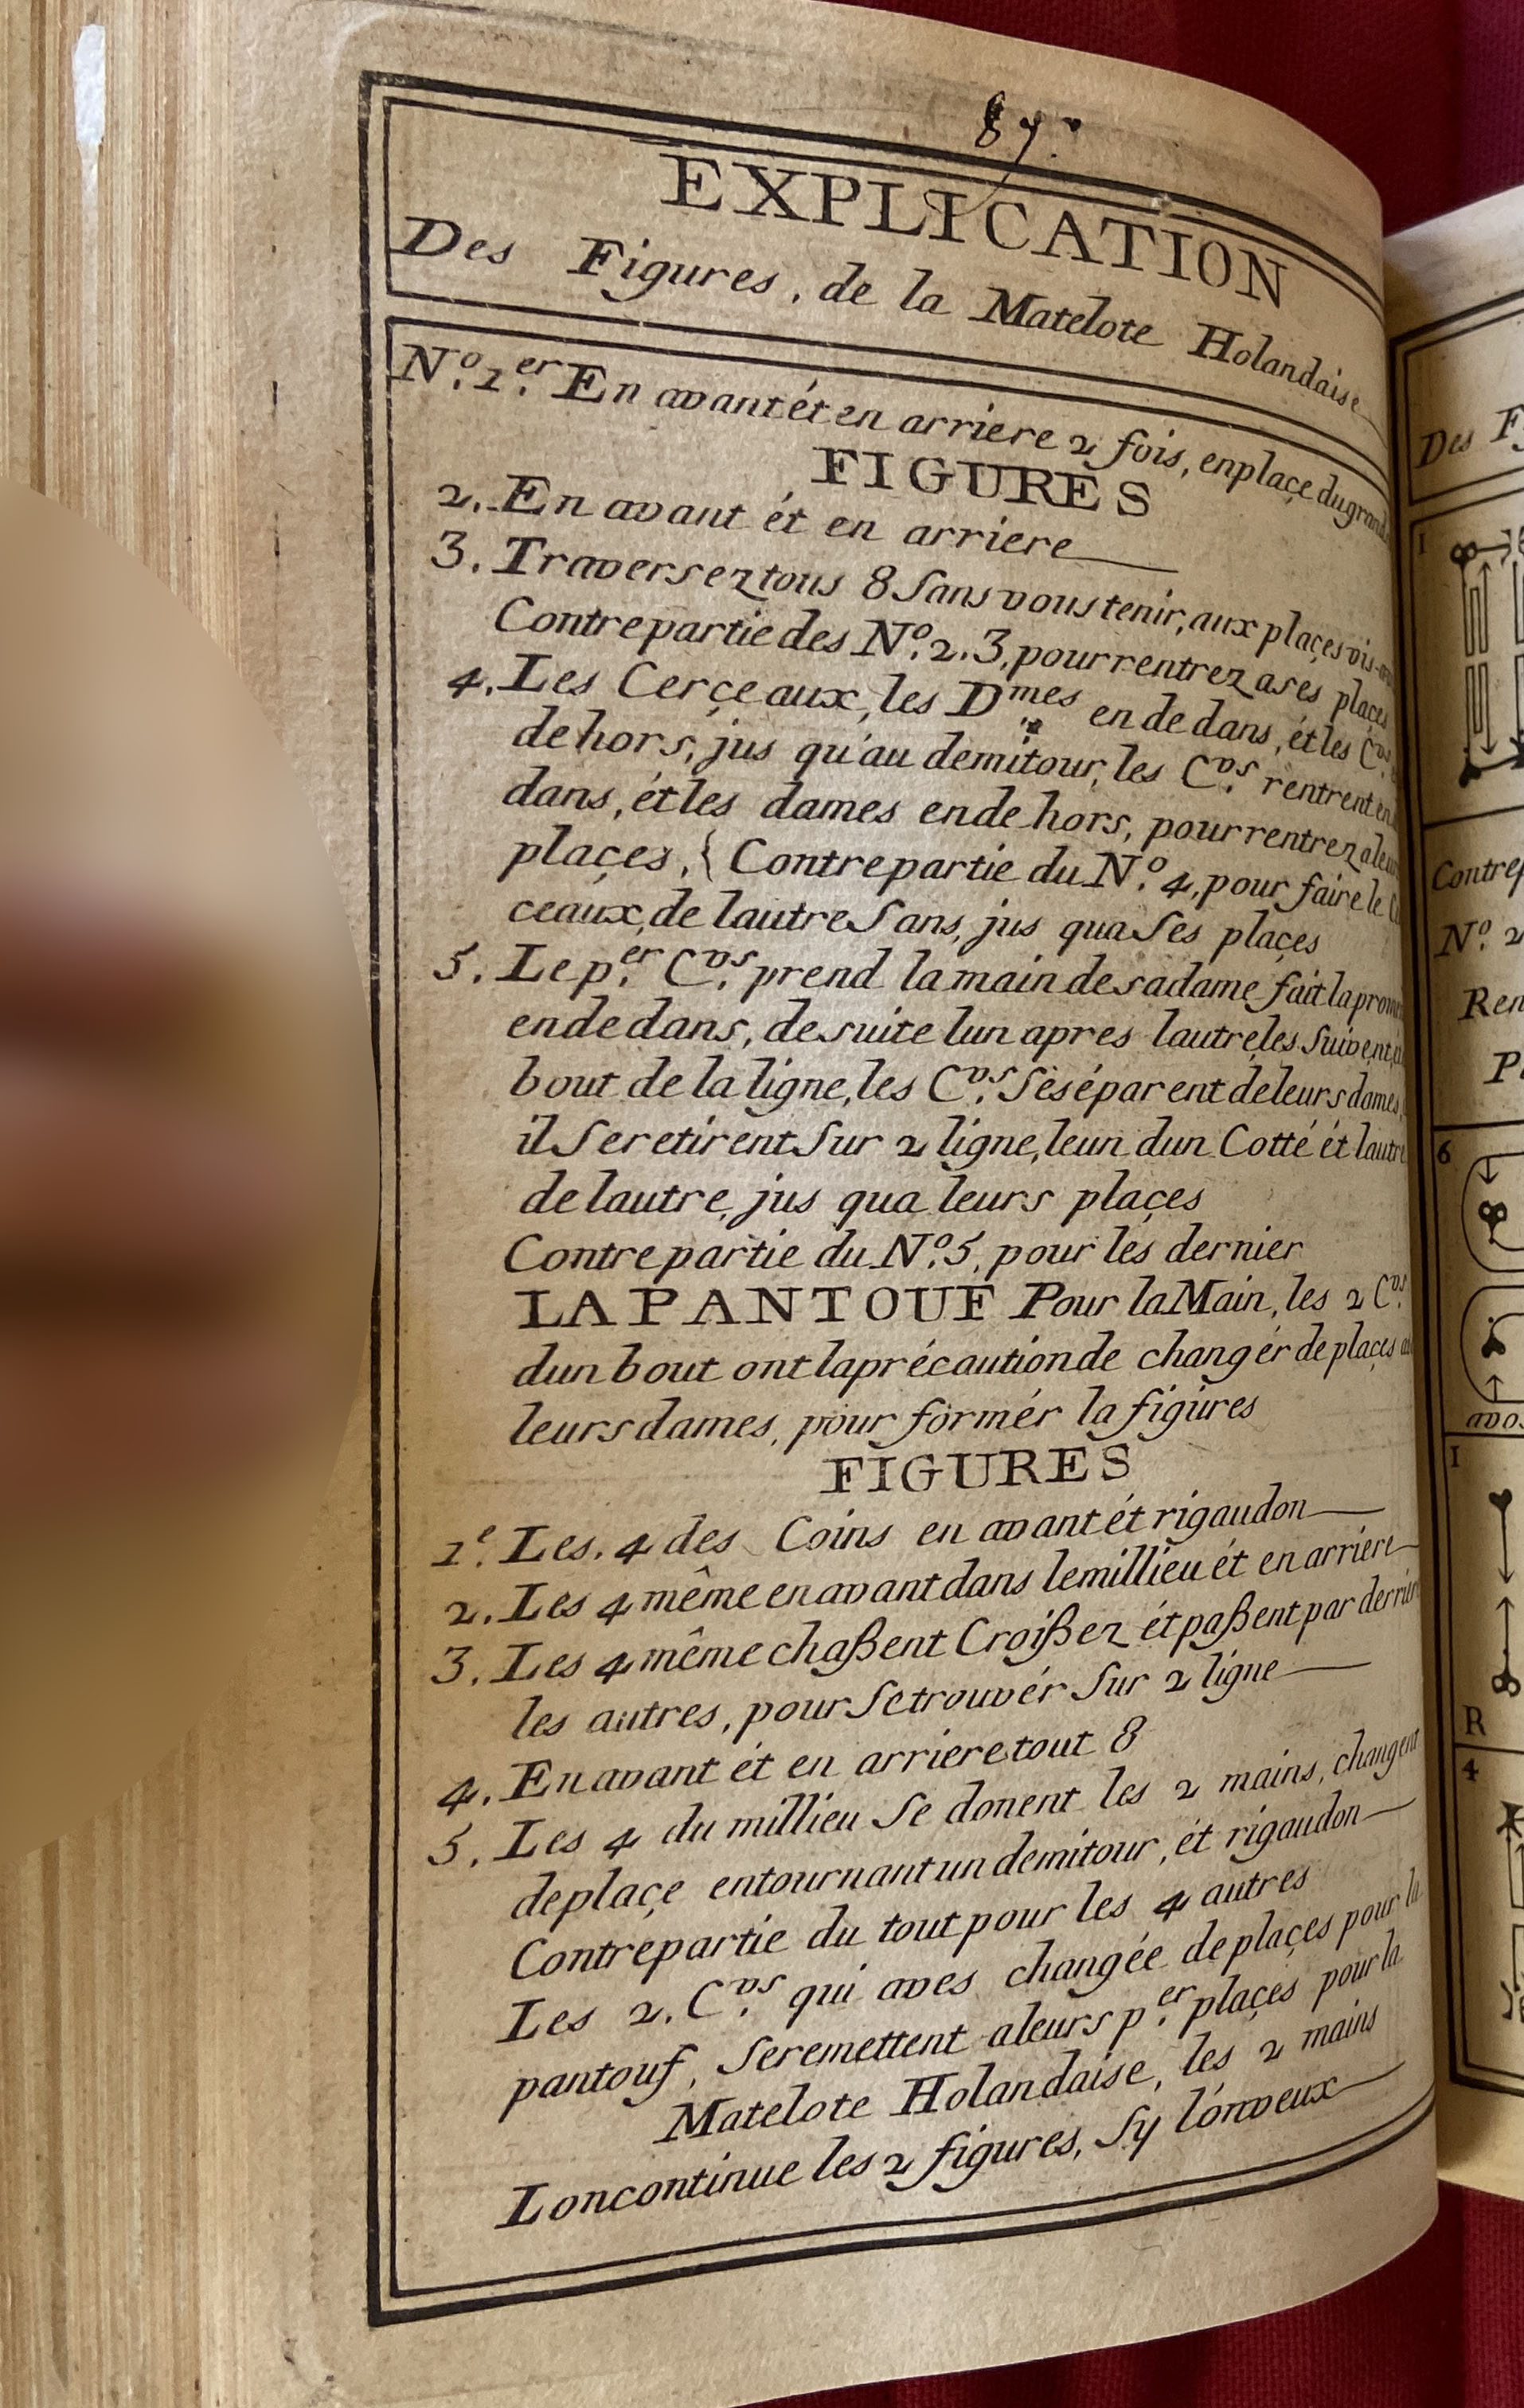 87.
EXPLICATION
Des Figures, de la Matelote Holandaise
N.º 1.er En avant ét en arriere 2 fois, en plaçe du grand
FIGURES
2. En avant ét en arriere
3. Traversez tous 8 Sans vous tenir, aux plaçes vis-
Contrepartie des N.º 2. 3, pour rentrez a ses plaçes
4. Les Cerçeaux, les D.mes en de dans, ét les C.vs
dehors, jus qu'au demitour, les C.vs rentrent en
dans, ét les dames en de hors, pour rentrez a leur
plaçes, { Contrepartie du N.º 4, pour faire le
ceaux, de lautre Sans, jus qua Ses plaçes
5. Le p.er C.vs prend la main de sa dame fait la
en de dans, de suite lun apres lautre les Suivent,
bout de la ligne, les C.vs Se séparent de leurs dames,
il Se retirent Sur 2 ligne, leun dun Cotté ét lautre
de lautre, jus qua leurs plaçes
Contre partie du N.º 5, pour les dernier
LA PANTOUF Pour la Main, les 2 C.vs
dun bout ont la précaution de changér de plaçes
leurs dames, pour formér la figures
FIGURES
1.e Les. 4 des Coins en avant ét rigaudon
2. Les 4 même en avant dans le millieu ét en arriere
3. Les 4 même chaßent Croißez ét paßent par derriere
les autres, pour Se trouvér Sur 2 ligne
4. En avant ét en arriere tout 8
5. Les 4 du millieu Se donent les 2 mains, changent
de plaçe en tournant un demitour, ét rigaudon
Contrepartie du tout pour les 4 autres
Les 2. C.vs qui aves changée de plaçes pour la
pantouf, Se remettent a leurs p.er plaçes pour la
Matelote Holandaise, les 2 mains
Lon continue les 2 figures, Sy lón veux
Des
1
Contrep
N.º 2
Ren
6
1
R
4